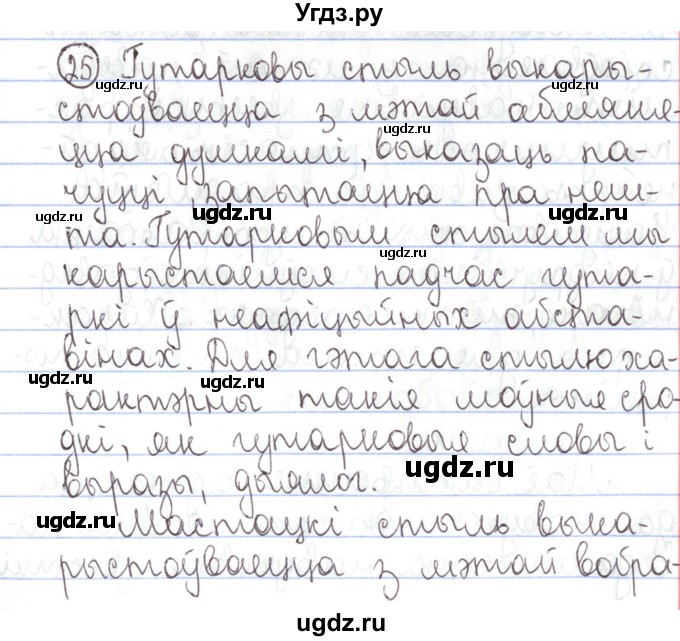 Угдз.ру
25 Гутарковы стыль выкары-
стоўваецца з мэтай абмяняе-
цца думкамі, выказаць па-
чуцці, запытаецца пра неш-
та. Гутарковым стылем мы
карыстаемся падчас гута-
ркі ў неафіцыйных абста-
вінах. Для гэтага стылю ха-
рактэрны такія моўныя сро-
дкі, як гутарковыя словы і
выразы, дыялог.
Мастацкі стыль выка-
рыстоўваецца з мэтай вобра-
ugdz.ru
ugdz.ru
ugdz.ru
ugdz.ru
ugdz.ru
ugdz.ru
ugdz.ru
ugdz.ru
ugdz.ru
ugdz.ru
ugdz.ru
ugdz.ru